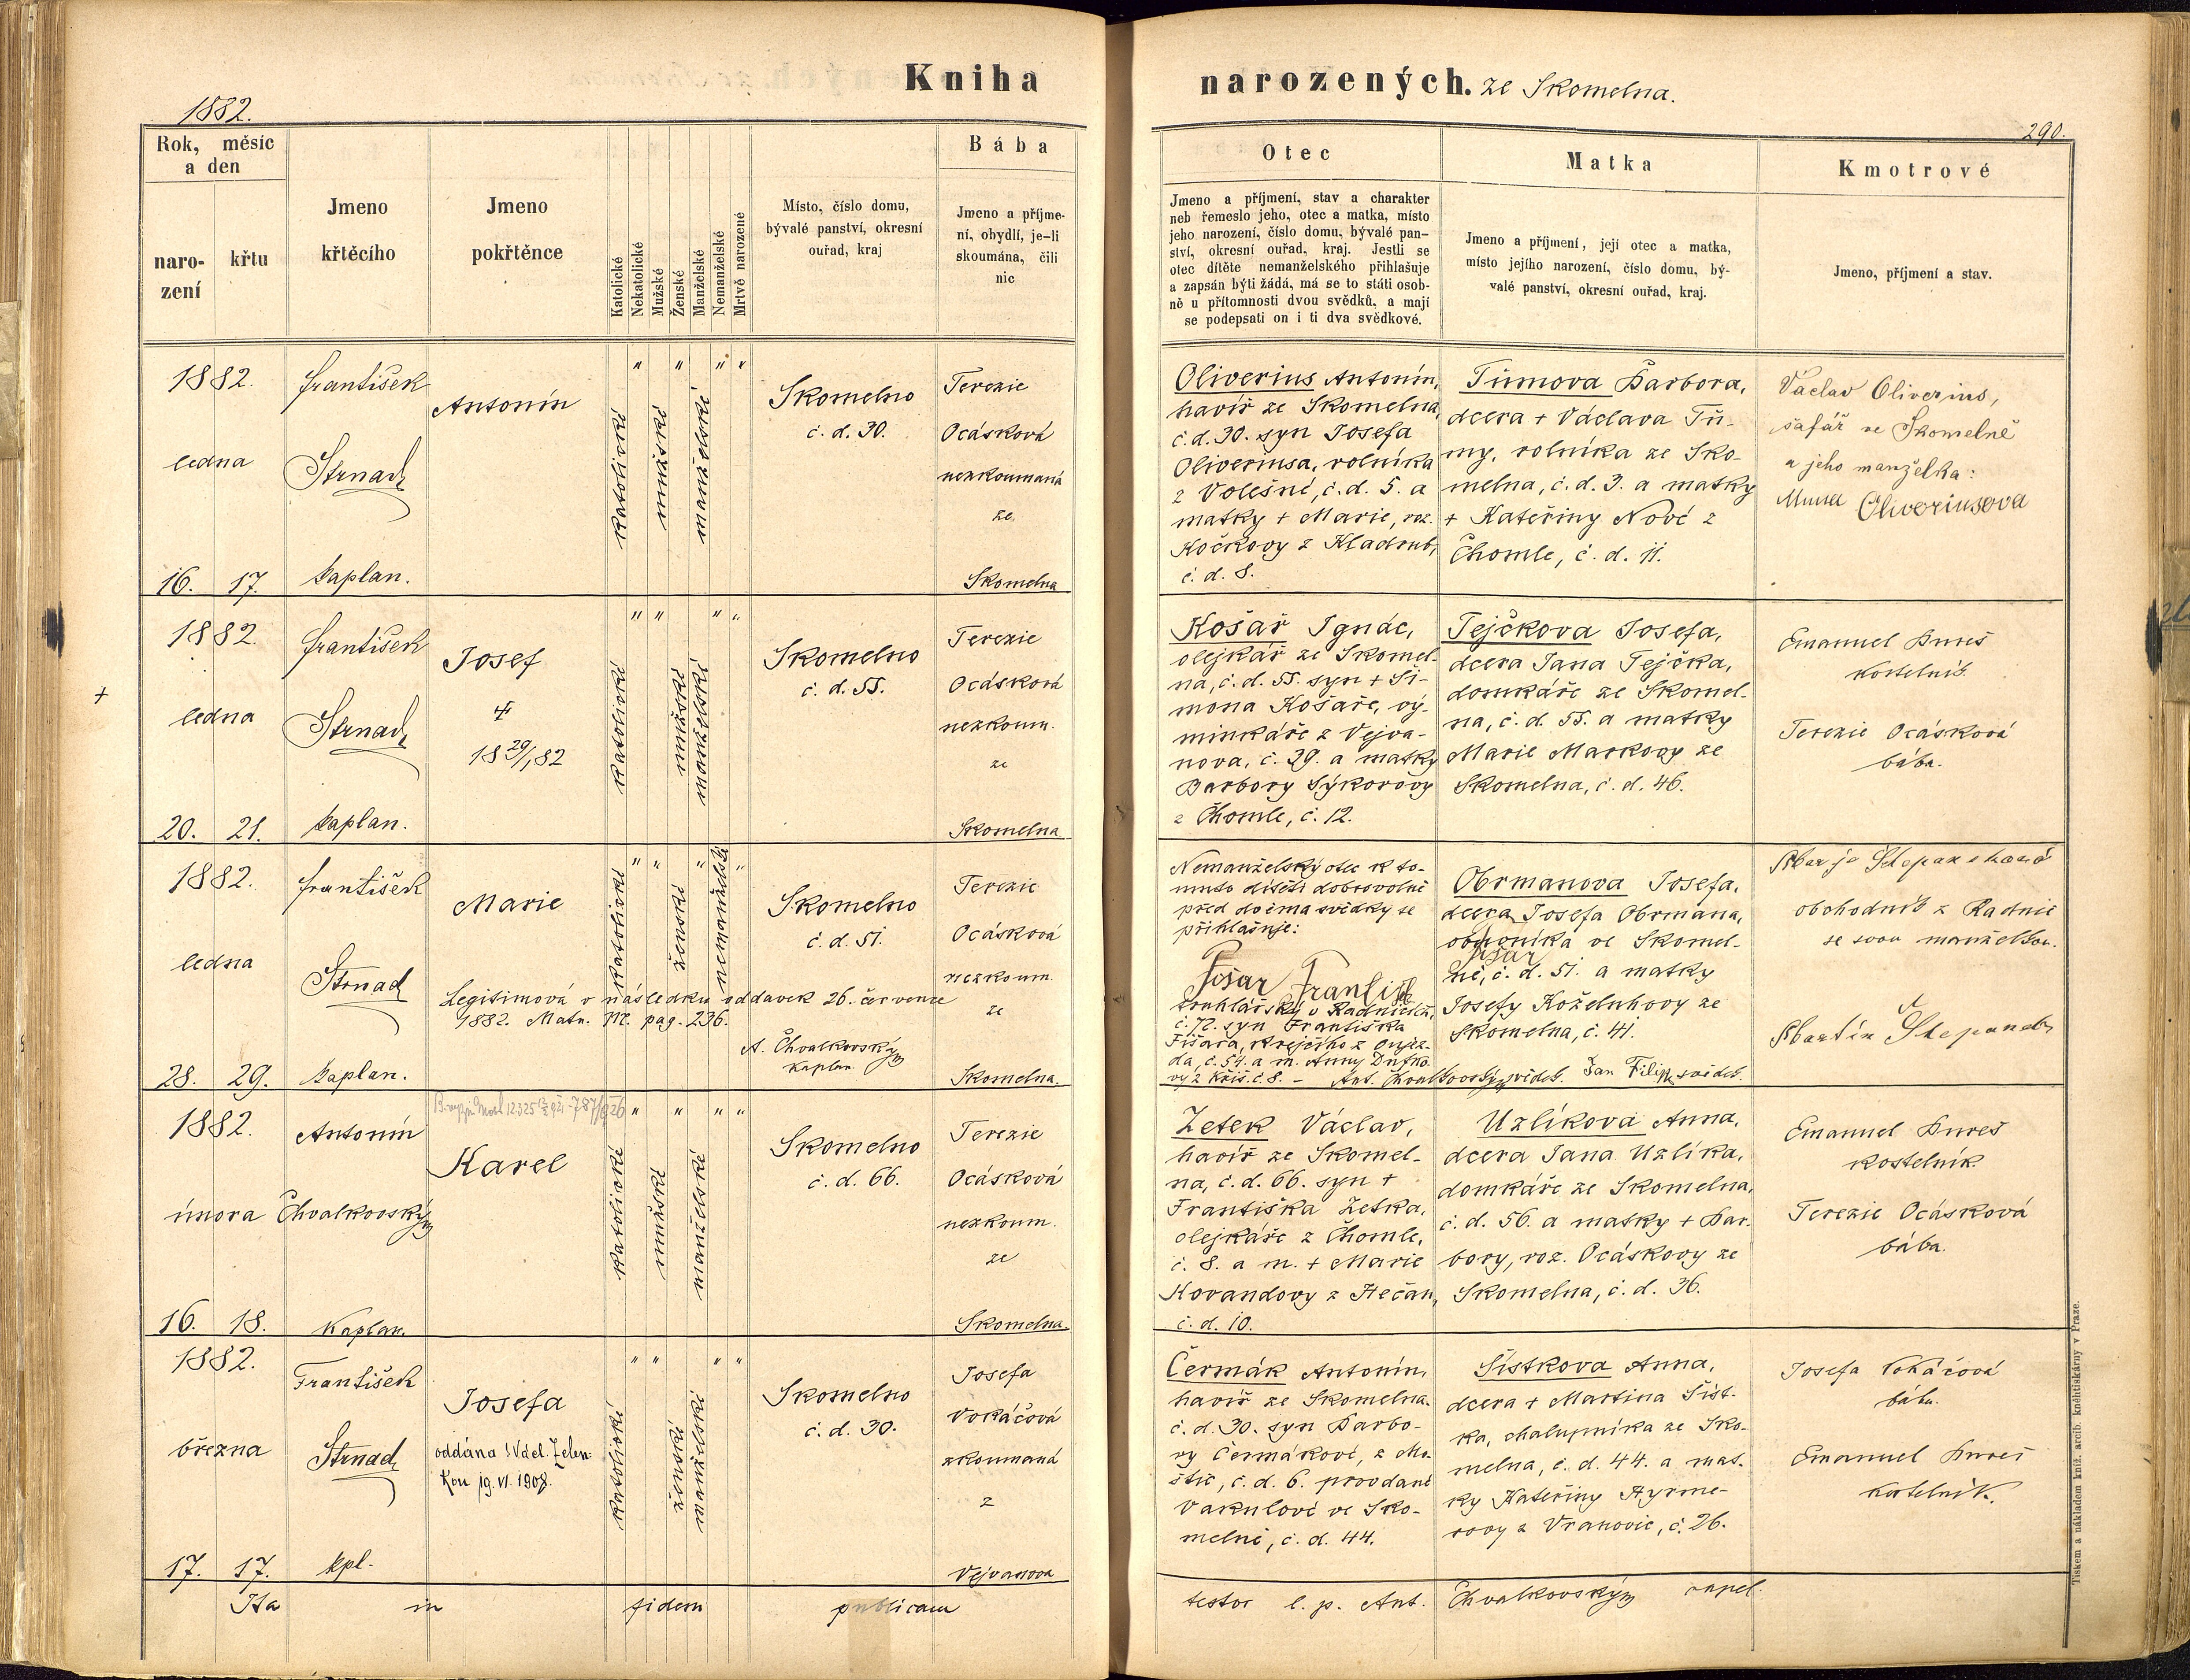 Kniha
narozených. ze Skomelna.
1882.
290.
Rok, měsíc
a den
naro-
zení
křtu
Jmeno
křtěcího
Jmeno
pokřtěnce
Katolické
Nekatolické
Mužské
Ženské
Manželské
Nemanželské
Mrtvě narozené
Místo, číslo domu,
bývalé panství, okresní
ouřad, kraj
Bába
Jmeno a příjme-
ní, obydlí, je-li
skoumána, čili
nic
Otec
Jmeno a příjmení, stav a charakter
neb řemeslo jeho, otec a matka, místo
jeho narození, číslo domu, bývalé pan-
ství, okresní ouřad, kraj. Jestli se
otec dítěte nemanželského přihlašuje
a zapsán býti žádá, má se to státi osob-
ně u přítomnosti dvou svědků, a mají
se podepsati on i ti dva svědkové.
Matka
Jmeno a příjmení, její otec a matka,
místo jejího narození, číslo domu, bý-
valé panství, okresní ouřad, kraj.
Kmotrové
Jmeno, příjmení a stav.
1882.
ledna
16. 17.
František
Strnad
kaplan.
Antonín
katolické
mužské
manželské
Skomelno
č. d. 30.
Terezie
Ocásková
nezkoumaná
ze
Skomelna
Oliverius Antonín,
havíř ze Skomelna,
č. d. 30. syn Josefa
Oliveriusa, rolníka
z Volešné, č. d. 5. a
matky + Marie, roz.
Kočkovy z Kladrub,
č. d. 8.
Tůmova Barbora,
dcera + Václava Tů-
my, rolníka ze Sko-
melna, č. d. 3. a matky
+ Kateřiny Nové z
Chomle, č. d. 11.
Václav Oliverius,
šafář ve Skomelně
a jeho manželka:
Oliveriusova
1882.
ledna
20. 21.
František
Strnad
kaplan.
Josef
18 29/1 82
katolické
mužské
manželské
Skomelno
č. d. 55.
Terezie
Ocásková
nezkoum.
ze
Skomelna
Košař Ignác,
olejkář ze Skomel-
na, č. d. 55. syn + Ši-
mona Košaře, vý-
minkáře z Vejva-
nova, č. 29. a matky
Barbory Sýkorovy
z Chomle, č. 12.
Tejčkova Josefa,
dcera Jana Tejčka,
domkáře ze Skomel-
na, č. d. 55. a matky
Marie Markovy ze
Skomelna, č. d. 46.
Emanuel Bureš
kostelník
Terezie Ocásková
bába.
1882.
ledna
28. 29.
František
Strnad
kaplan.
Marie
Legitimová v následku oddavek 26. července
1882. Matr. M. pag. 236.
A. Chvalkovský
kaplan
katolické
ženské
nemanželské
Skomelno
č. d. 51.
Terezie
Ocásková
nezkoum.
ze
Skomelna.
Nemanželský otec k to-
muto dítěti dobrovolně
před dvěma svědky se
přihlašuje:
Fišar František
truhlářský v Radnicích,
č. 72. syn Františka
Fišara, krejčího z Oujez-
da, č. 54. a m. Anny
č. 8. – Ant. Chvalkovský svěd. Jan Filip, svěd.
Obrmanova Josefa,
dcera Josefa Obrmana,
ve Skomel-
ně, č. d. 51. a matky
Josefy Koželuhovy ze
Skomelna, č. 41.
Štepanekova
obchodník z Radnic
se svou manželkou.
Martin Štepanek
1882.
února
16. 18.
Antonín
Chvalkovský
Kaplan.
Karel
katolické
mužské
manželské
Skomelno
č. d. 66.
Terezie
Ocásková
nezkoum.
ze
Skomelna
Zetek Václav,
havíř ze Skomel-
na, č. d. 66. syn +
Františka Zetka,
olejkáře z Chomle,
č. 8. a m. + Marie
Kovandovy z Hečan,
č. d. 10.
Uzlíkova Anna,
dcera Jana Uzlíka,
domkáře ze Skomelna,
č. d. 56. a matky + Bar-
bory, roz. Ocáskovy ze
Skomelna, č. d. 36.
Emanuel Bureš
kostelník.
Terezie Ocásková
bába.
1882.
března
17. 17.
František
Strnad
kpl.
Josefa
oddána s Vdel. Zelen-
kou 19. VI. 1908.
katolické
ženské
manželské
Skomelno
č. d. 30.
Josefa
Vokáčová
zkoumaná
z
Vejvanova
Čermák Antonín,
havíř ze Skomelna.
č. d. 30. syn Barbo-
ry Čermákové, z Mo-
štic, č. d. 6. provdané
Vakulové ve Sko-
melně, č. d. 44.
Šístkova Anna,
dcera + Martina Šíst-
ka, chalupníka ze Sko-
melna, č. d. 44. a mat-
ky Kateřiny Hyrme-
rovy z Vranovic, č. 26.
Josefa Vokáčová
bába.
Emanuel Bureš
kostelník.
Ita in fidem publicam
testor l. p. Ant. Chvalkovský capel.
Tiskem a nákladem kníž. arcib. knihtiskárny v Praze.